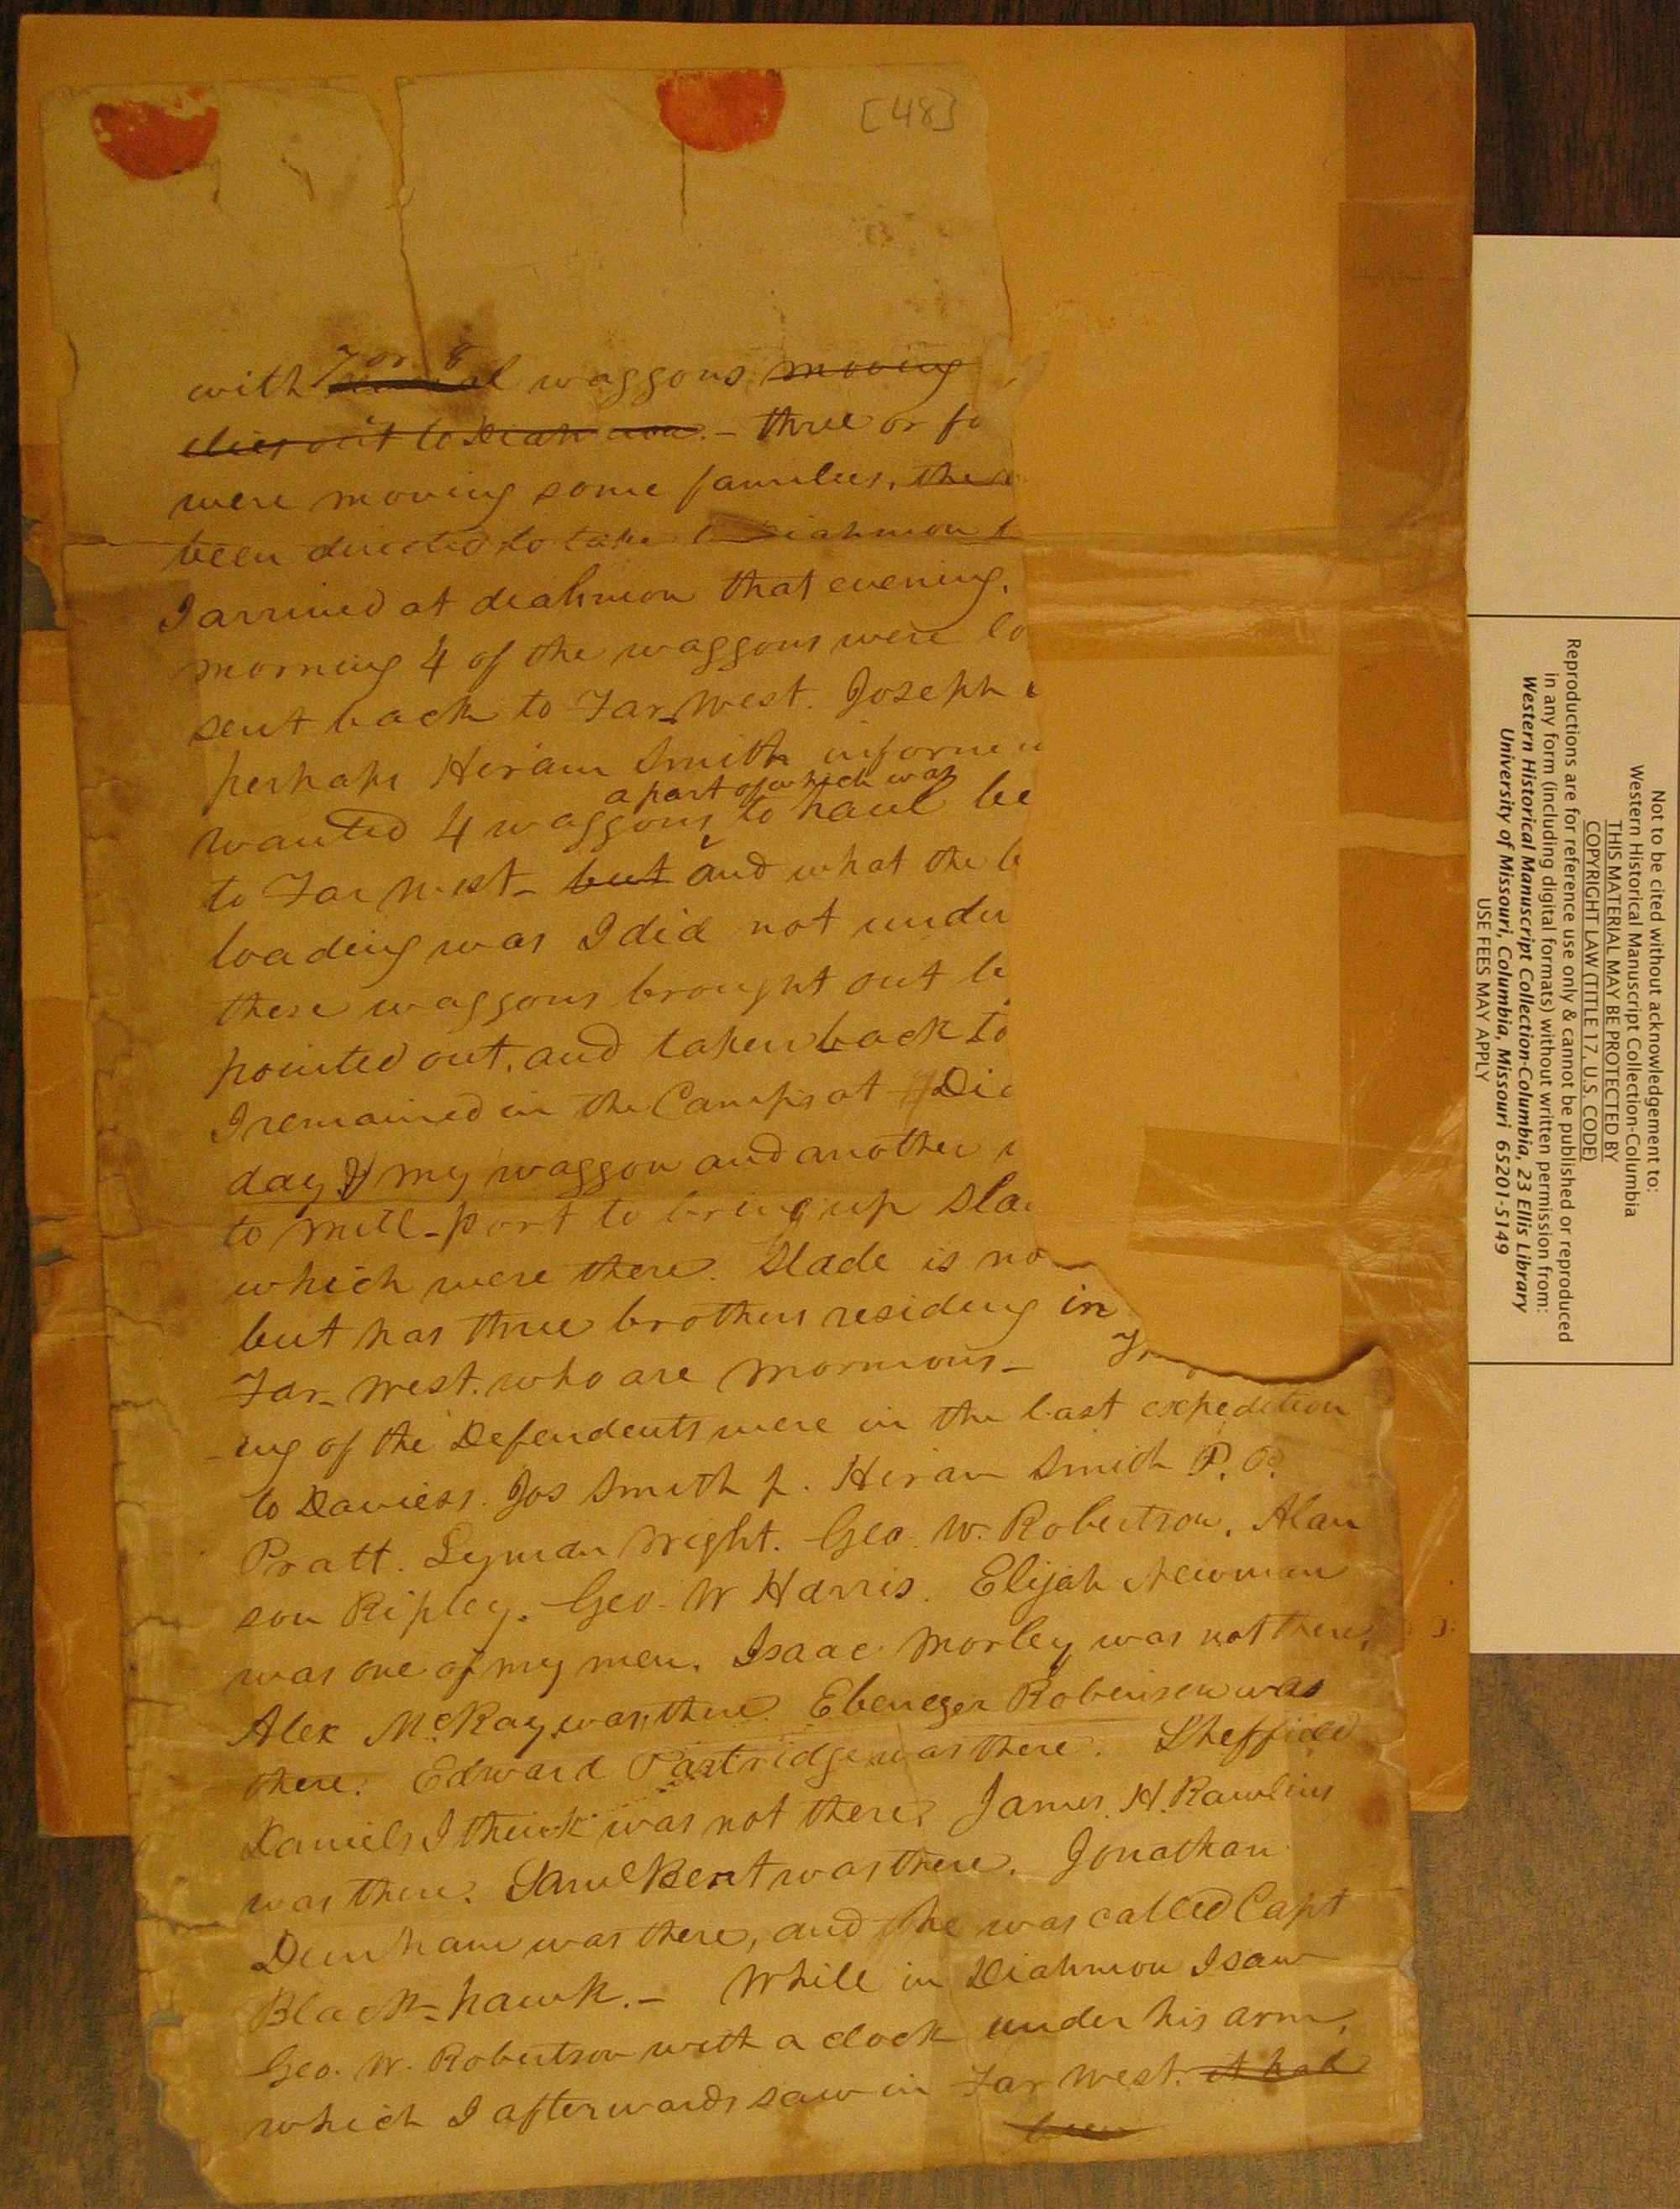 [48]
with 7 or 8 waggons moving
out to Diahmon. - three or fo
were moving some families, the
been directed to take Diahmon t
I arrived at diahmon that evening.
morning 4 of the waggons were lo
sent back to Far West. Joseph
perhaps Hiram Smith informe
a part of which was
wanted 4 waggons to haul be
to Far West - but and what the b
loading was I did not under
these waggons brought out be
pointed out, and taken back to
I remained in the Camps at Dia
day my waggon and another
to Mill-port to bring up Sla
which were there. Slade is no
but has three brothers residing in
Far West. who are mormons -
-ing of the Defendents were in the last expedition
to Daviess. Jos Smith jr. Hiram Smith P. P.
Pratt. Lyman Wright. Geo. W. Robertson, Alan
son Ripley. Geo. W Harris. Elijah Newman
was one of my men. Isaac Morley was not there,
Alex McRay was there. Ebenezer Robenson was
there. Edward Partridge was there. Sheffield
Daniels I think was not there, James. H. Rawlins
was there. Saml Bent was there. Jonathan
Dunham was there, and he was called Capt
Black-hawk. - While in Diahmon I saw
Geo. W. Robertson with a clock under his arm,
which I afterwards saw in Far West. it had
been
Not to be cited without acknowledgement to:
Western Historical Manuscript Collection-Columbia
THIS MATERIAL MAY BE PROTECTED BY
COPYRIGHT LAW (TITLE 17, U.S. CODE)
Reproductions are for reference use only & cannot be published or reproduced
in any form (including digital formats) without written permission from:
Western Historical Manuscript Collection-Columbia, 23 Ellis Library
University of Missouri, Columbia, Missouri 65201-5149
USE FEES MAY APPLY